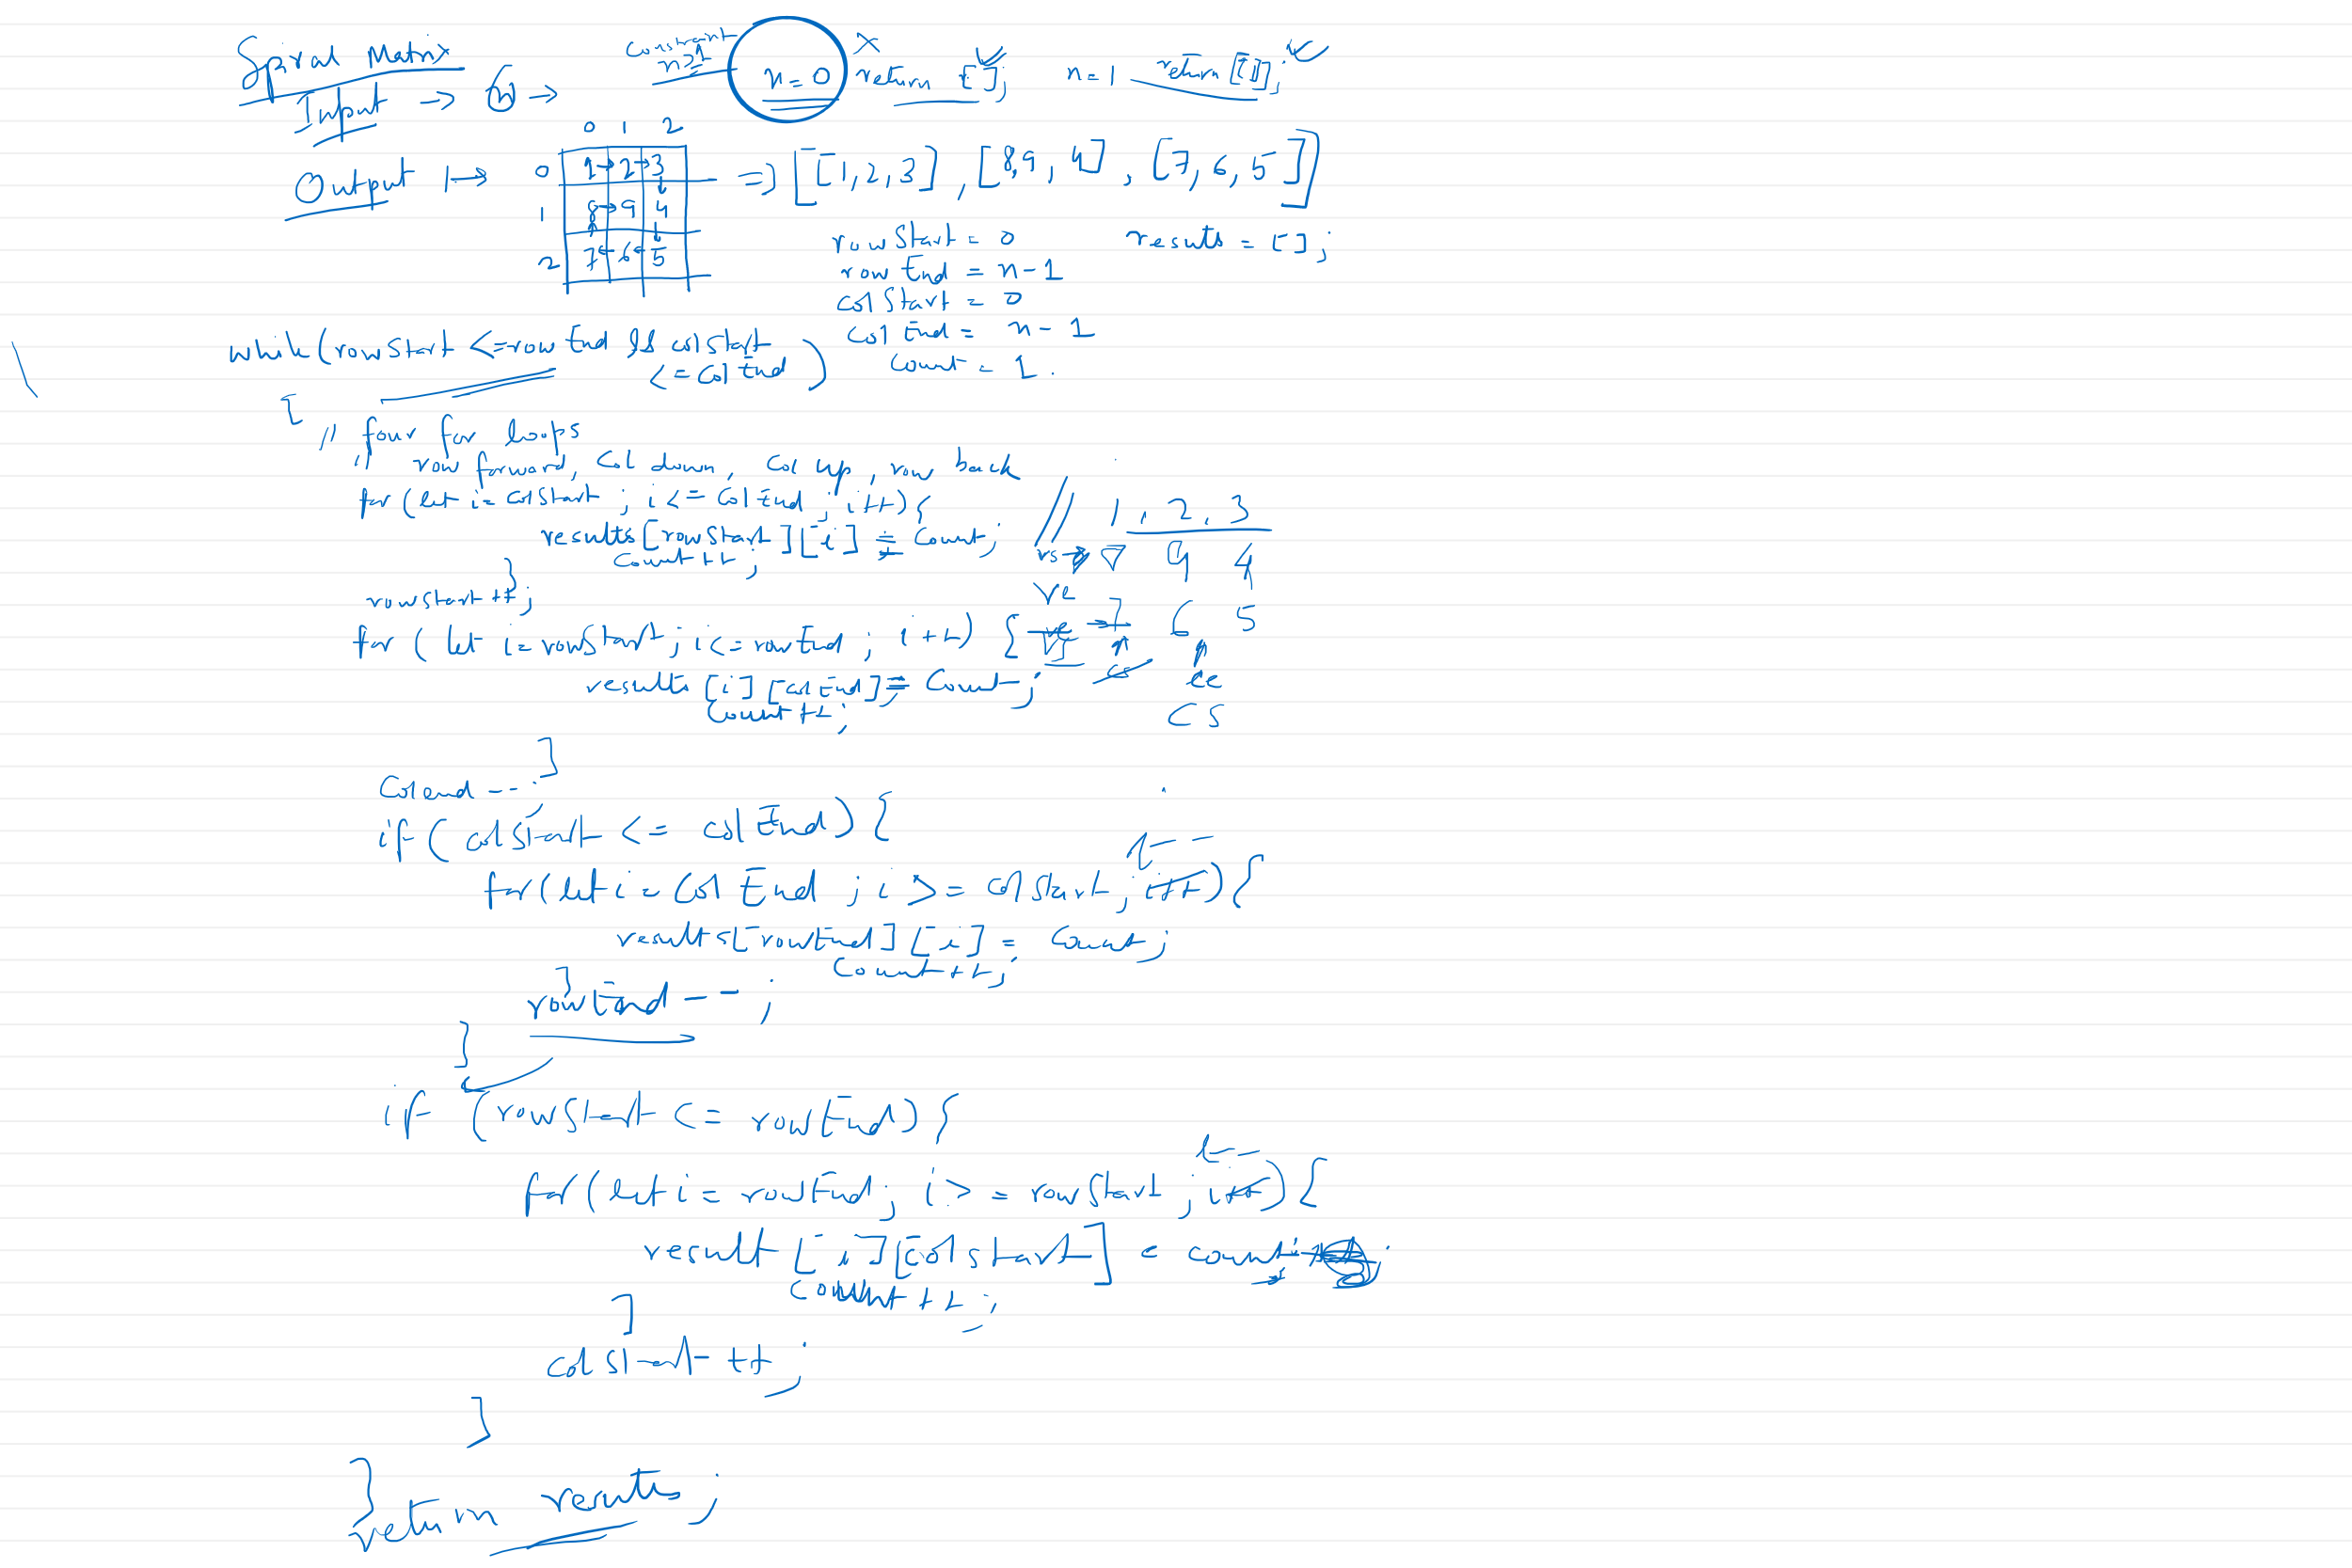 Spiral Matrix
Constraint n>=1 n=0 return []; n=1 return [[1]];
Input → n →
0 1 2
Output → 0 1→2→3 => [[1,2,3], [8,9,4], [7,6,5]]
1 8→9 4
2 7 6 5
rowStart = 0 results = [];
rowEnd = n-1
colStart = 0
colEnd = n-1
count = 1.
while(rowStart <=rowEnd && colStart
<=colEnd)
{ // four for loops
// row forward, col down, col up, row back
for (let i= colStart ; i <= colEnd ; i++) {
results[rowStart][i] = count;
count++;
}
// 1, 2, 3
rs→ 9 4
re
6 5
ce
cs
rowstart++;
for (let i=rowStart; i<=rowEnd ; i++) {
results [i][colEnd] = count;
count++;
}
colend--;
if (colStart <= colEnd) {
for(let i = colEnd ; i >= colStart; i--) {
results[rowEnd][i] = count;
count++;
}
rowEnd--;
}
if (rowStart <= rowEnd) {
for (let i = rowEnd; i >= rowStart ; i--) {
result [i][colstart] = count;
count++;
}
colstart++;
}
}
return results;